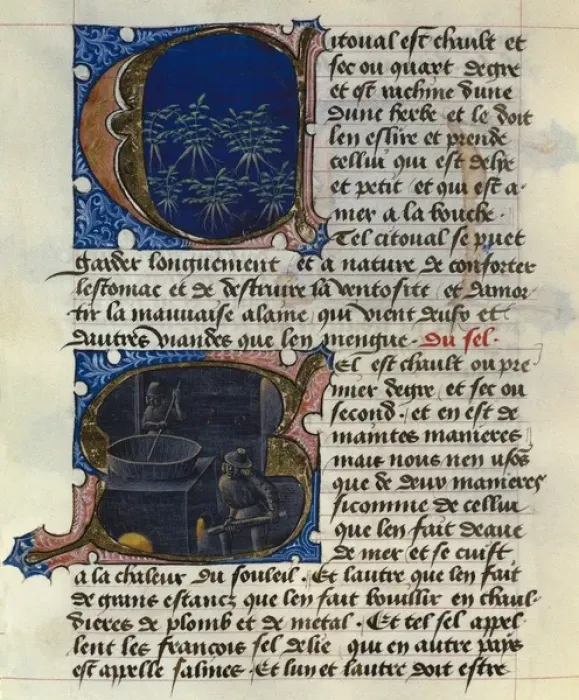 Citoual est chault et
sec ou quart degre
et est rachine dune
dune herbe et le doit
len eslire et prendre
cellui qui est delye
et petit et qui est a-
mer a la bouche.
Tel citoual se puet
garder longuement et a nature de conforter
lestomac et de destruire la ventosite et damor
tir la mauuaise alaine qui vient
dautres viandes que len mengue. Du sel.
Sel est chault ou pre-
mier degre et sec ou
second. et en est de
maintes manieres
mais nous nen usõs
que de deux manieres
sicomme de cellui
que len fait deaue
de mer et se cuist
a la chaleur du souleil. Et lautre que len fait
de grans estancz que len fait bouillir en chaul-
dieres de plomb et de metal. Et tel sel appel-
lent les francois sel delie qui en autre pays
est appelle salines. Et lun et lautre doit estre